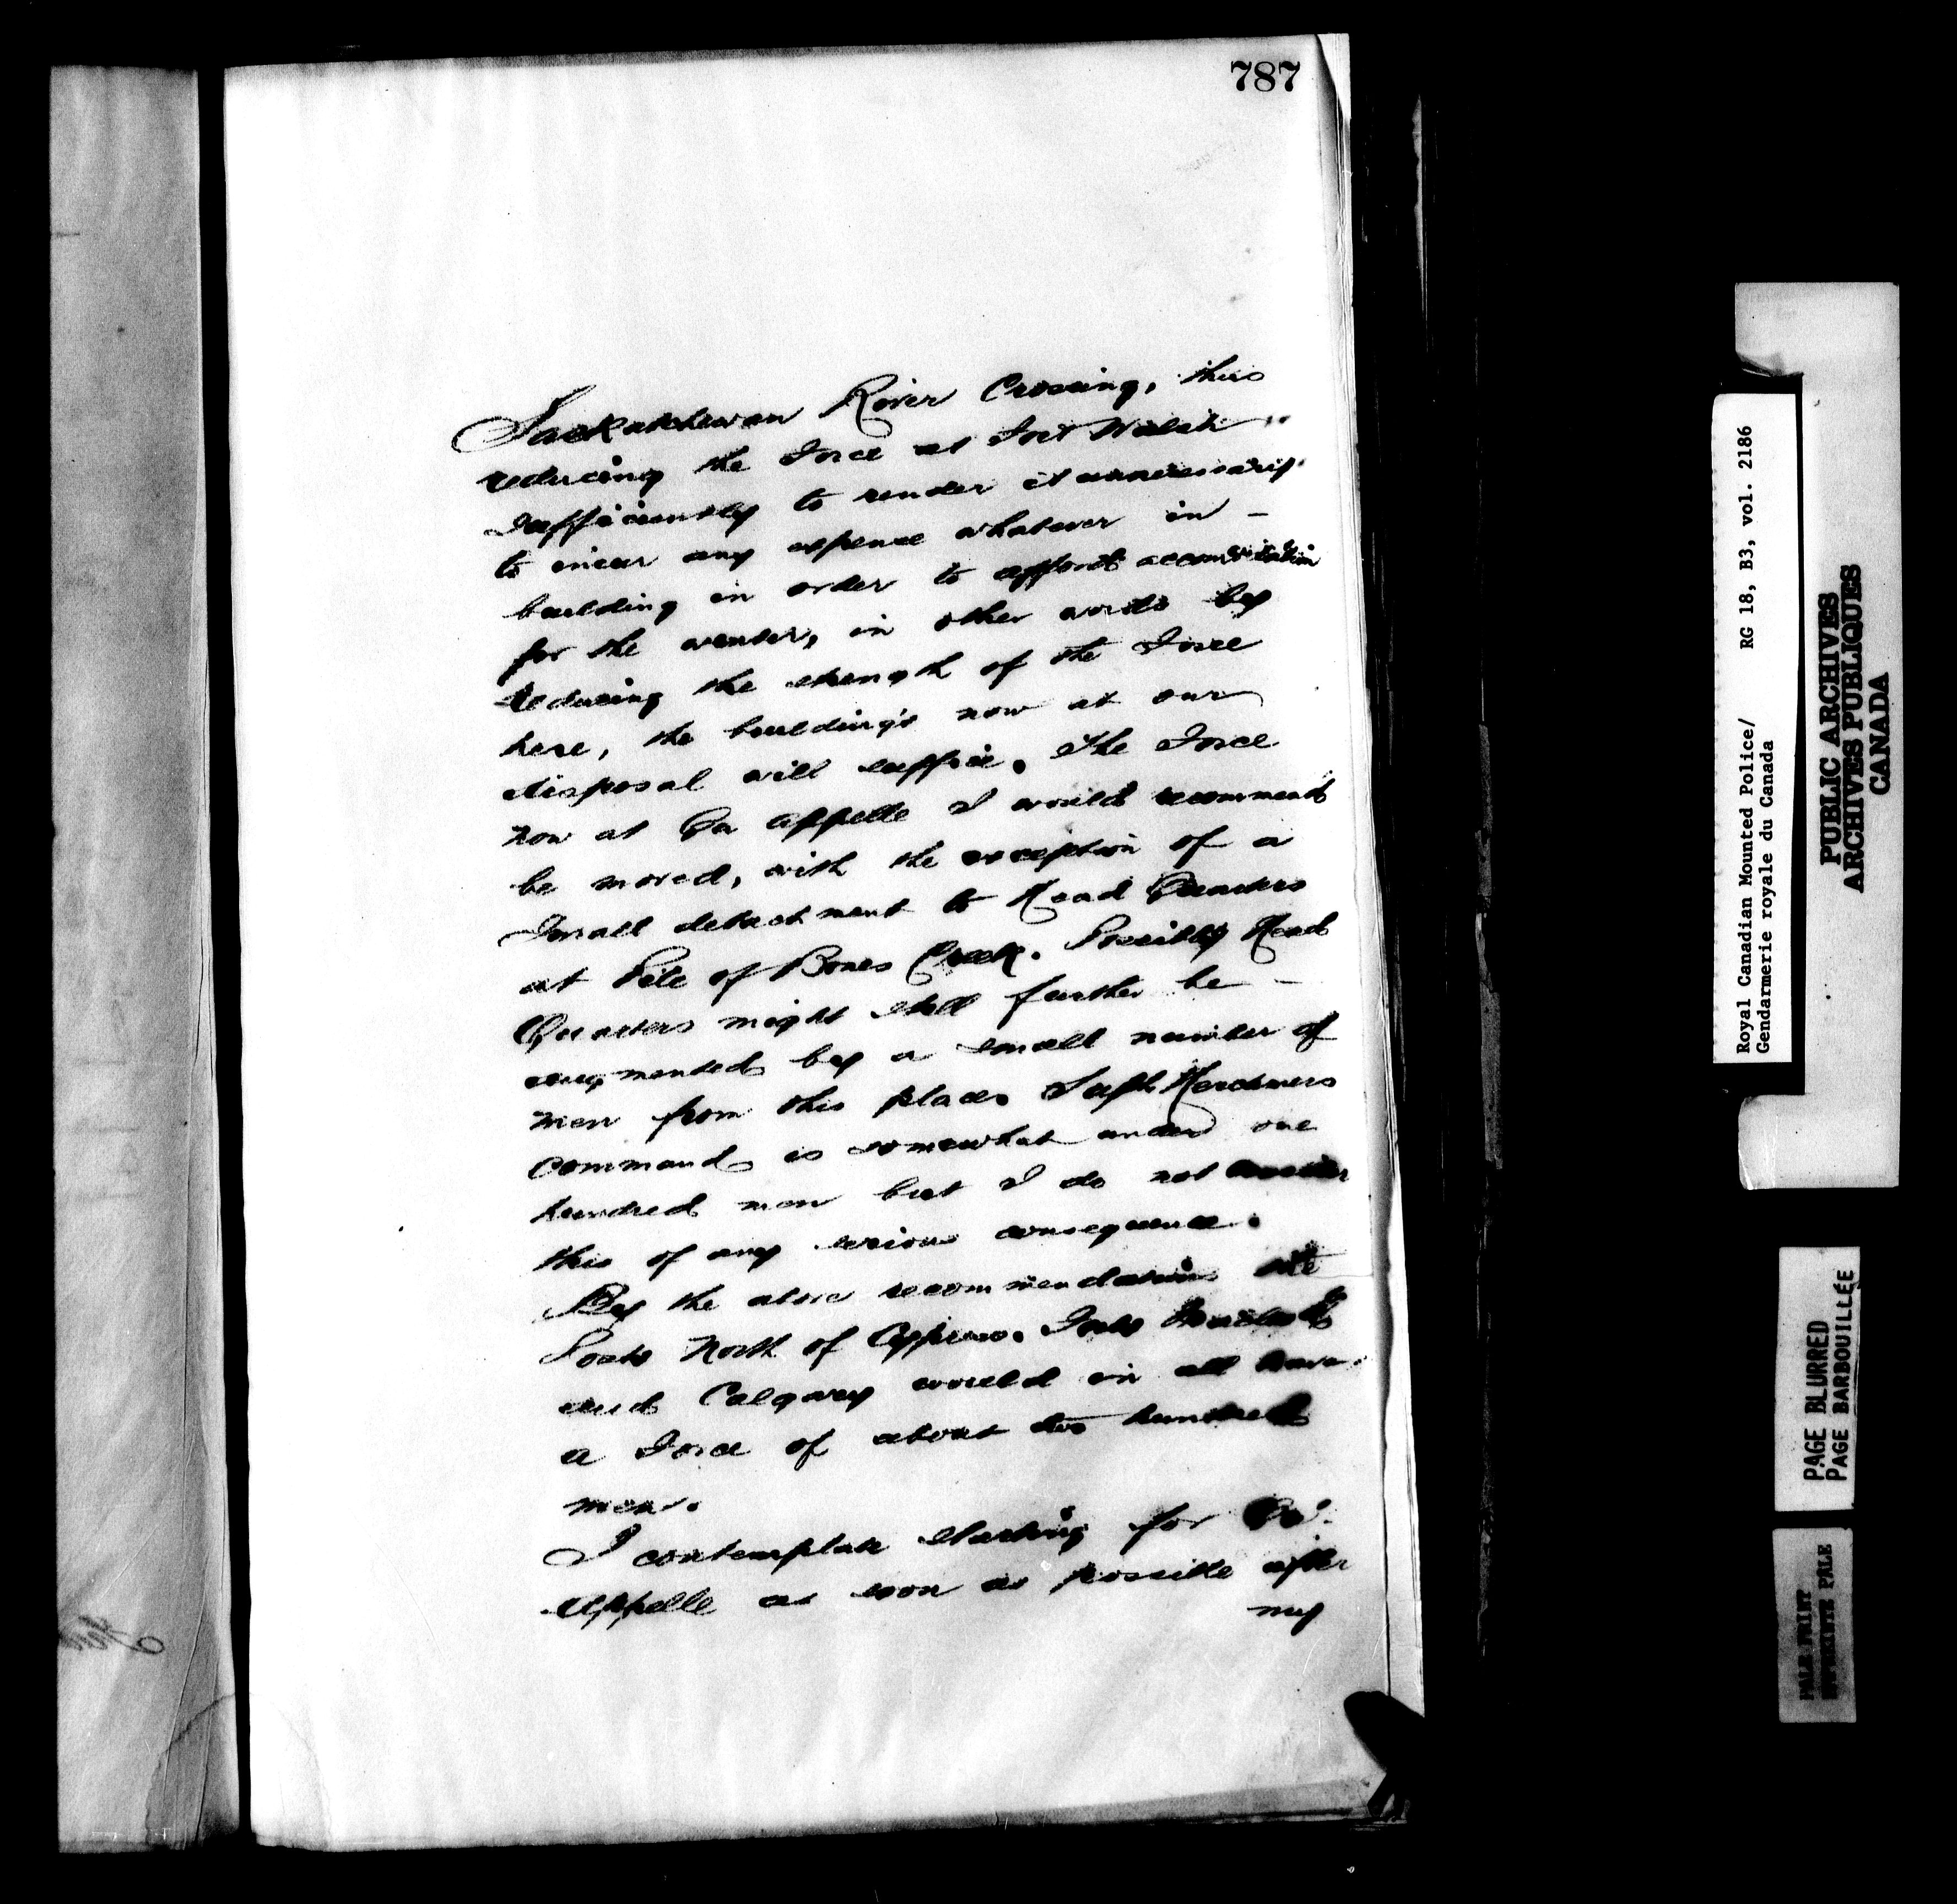 787
Saskatchewan River Crossing, thus
reducing the Force at Fort Walsh
sufficiently to render it unnecessary
to incur any expense whatever in -
building in order to afford accomodation
for the winter, in other words by
reducing the strength of the Force
here, the buildings now at our
disposal will suffice. The Force
now at Qu Appelle I would recommend
be moved, with the exception of a
small detachment to Head Quarters
at Pile of Bones Creek. Possibly Head
Quarters might still further be -
augmented by a small number of
men from this place. Supt Herchmers
command is somewhat under one
hundred men but I do not consider
this of any serious consequence.
By the above recommendations the
Posts North of Cypress. Forts
and Calgary would in all have
a Force of about two hundred
men.
I contemplate starting for Qu'
Appelle as soon as possible after
my
Royal Canadian Mounted Police/ RG 18, B3, vol. 2186
Gendarmerie royale du Canada
PUBLIC ARCHIVES
ARCHIVES PUBLIQUES
CANADA
PAGE BLURRED
PAGE BARBOUILLÉE
PALE PRINT
EPREUVE PALE